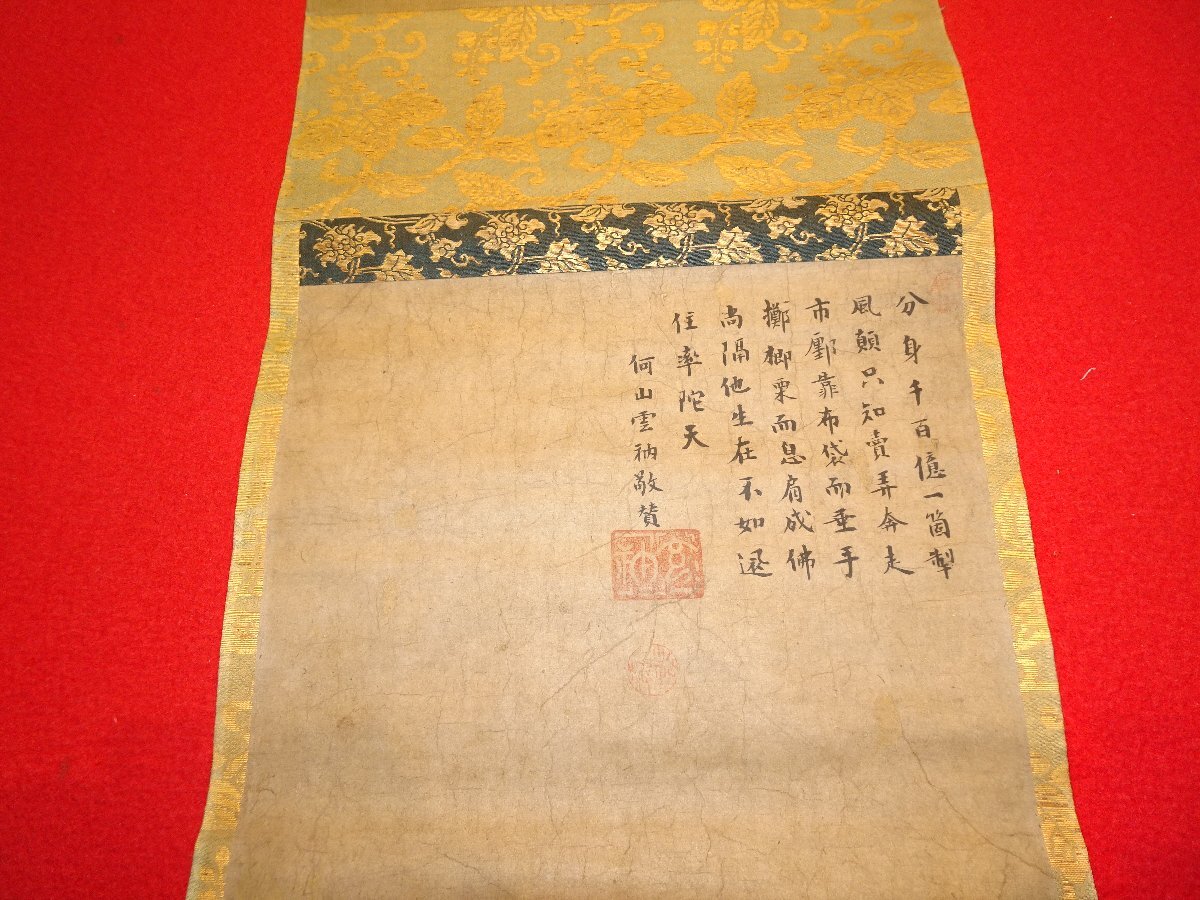 分身千百億一箇掣
風顛只知賣弄奔走
市鄽靠布袋而垂手
擲楖栗而息肩成佛
尚隔他生在不如退
住率陀天
何山雲衲敬賛